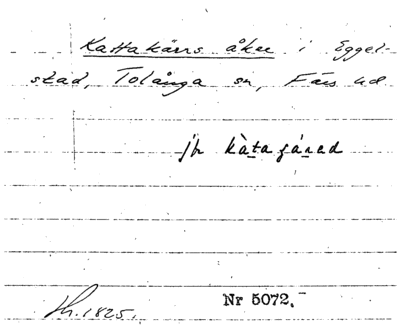 Kattakärrs åker i Eggel-
stad, Tolånga sn, Färs hd
jfr kàtaʒárəd
Nr 5072.
1825.